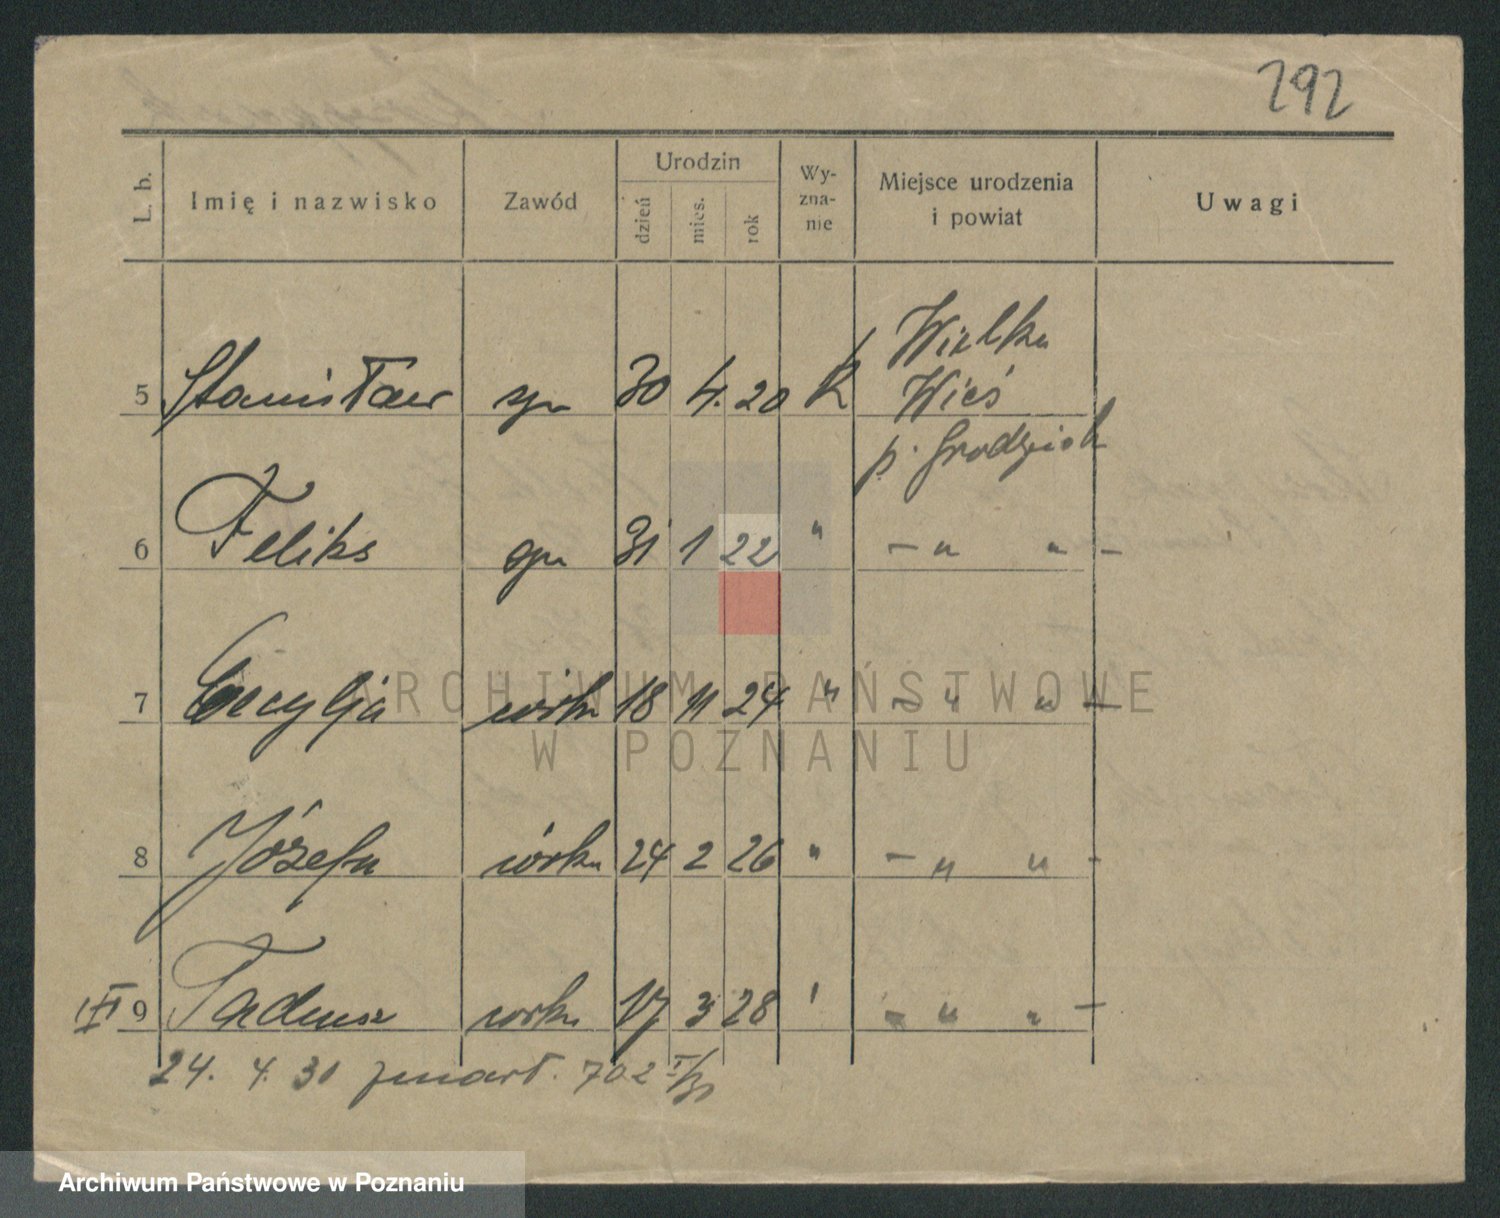 292
L. b. Imię i nazwisko Zawód Urodzin dzień mies. rok Wy-zna-nie Miejsce urodzenia i powiat Uwagi
Wielka
5 Stanisław syn 30 4. 20 k Wieś
p. Grodzisk
6 Feliks syn 31 1 22 " - " " -
7 Cecylja córka 18 11 24 " - " " -
ARCHIWUM PAŃSTWOWE
W POZNANIU
8 Józefa córka 24 2 26 " - " " -
9 Tadeusz córka 17 3 28 ' - " " -
24. 4. 30 zmarł. 702
Archiwum Państwowe w Poznaniu